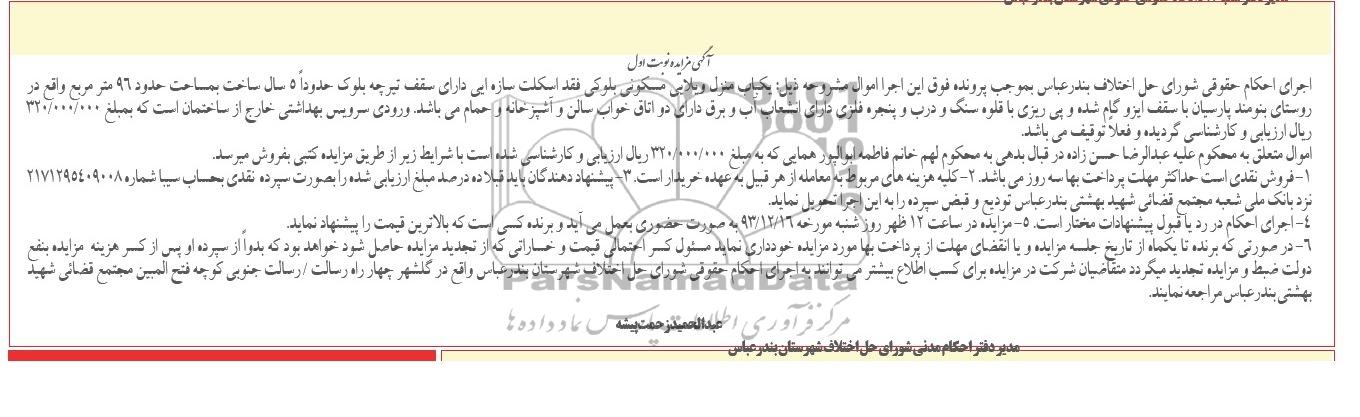 آگهی مزایده نوبت اول
اجرای احکام حقوقی شورای حل اختلاف بندرعباس بموجب پرونده فوق این اجرا اموال مشروحه ذیل: یکباب منزل ویلایی مسکونی بلوکی فقد اسکلت سازه ایی دارای سقف تیرچه بلوک حدوداً ۵ سال ساخت بمساحت حدود ۹۶ متر مربع واقع در
روستای بنومند پارسیان با سقف ایزو گام شده و پی ریزی با قلوه سنگ و درب و پنجره فلزی دارای انشعاب آب و برق دارای دو اتاق خواب سالن و آشپزخانه و حمام می باشد. ورودی سرویس بهداشتی خارج از ساختمان است که بمبلغ ۳۲۰/۰۰۰/۰۰۰
ریال ارزیابی و کارشناسی گردیده و فعلاً توقیف می باشد.
اموال متعلق به محکوم علیه عبدالرضا حسن زاده در قبال بدهی به محکوم لهم خانم فاطمه ابوالپور همایی که به مبلغ ۳۲۰/۰۰۰/۰۰۰ ریال ارزیابی و کارشناسی شده است با شرایط زیر از طریق مزایده کتبی بفروش میرسد.
۱-فروش نقدی است حداکثر مهلت پرداخت بها سه روز می باشد. ۲-کلیه هزینه های مربوط به معامله از هر قبیل به عهده خریدار است. ۳-پیشنهاد دهندگان باید قبلا ده درصد مبلغ ارزیابی شده را بصورت سپرده نقدی بحساب سیبا شماره ۲۱۷۱۲۹۵۴۰۹۰۰۸
نزد بانک ملی شعبه مجتمع قضائی شهید بهشتی بندرعباس تودیع و قبض سپرده را به این اجرا تحویل نماید.
۴-اجرای احکام در رد یا قبول پیشنهادات مختار است. ۵-مزایده در ساعت ۱۲ ظهر روز شنبه مورخه ۹۳/۱۲/۱۶ به صورت حضوری بعمل می آید و برنده کسی است که بالاترین قیمت را پیشنهاد نماید.
۶-در صورتی که برنده تا یکماه از تاریخ جلسه مزایده و یا انقضای مهلت از پرداخت بها مورد مزایده خودداری نماید مسئول کسر احتمالی قیمت و خساراتی که از تجدید مزایده حاصل شود خواهد بود که بدواً از سپرده او پس از کسر هزینه مزایده بنفع
دولت ضبط و مزایده تجدید میگردد متقاضیان شرکت در مزایده برای کسب اطلاع بیشتر می توانند به اجرای احکام حقوقی شورای حل اختلاف شهرستان بندرعباس واقع در گلشهر چهار راه رسالت /رسالت جنوبی کوچه فتح المبین مجتمع قضائی شهید
بهشتی بندرعباس مراجعه نمایند.
ParsNamadData
مرکز فرآوری اطلاعات پارس نماد داده ها
عبدالحمید زحمت پیشه
مدیر دفتر احکام مدنی شورای حل اختلاف شهرستان بندرعباس